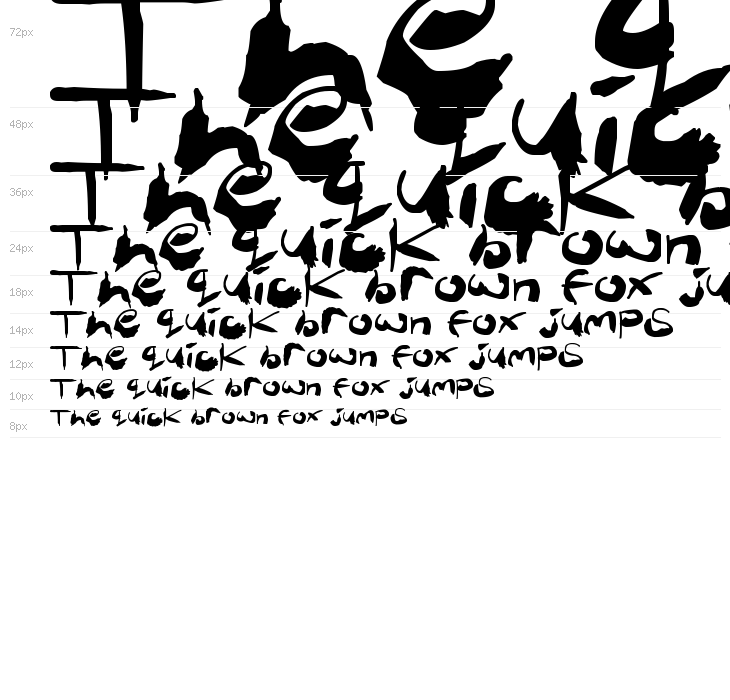 72px The q
48px The quic
36px The quick b
24px The quick brown
18px The quick brown fox ju
14px The quick brown fox jumps
12px The quick brown fox jumps
10px The quick brown fox jumps
8px The quick brown fox jumps